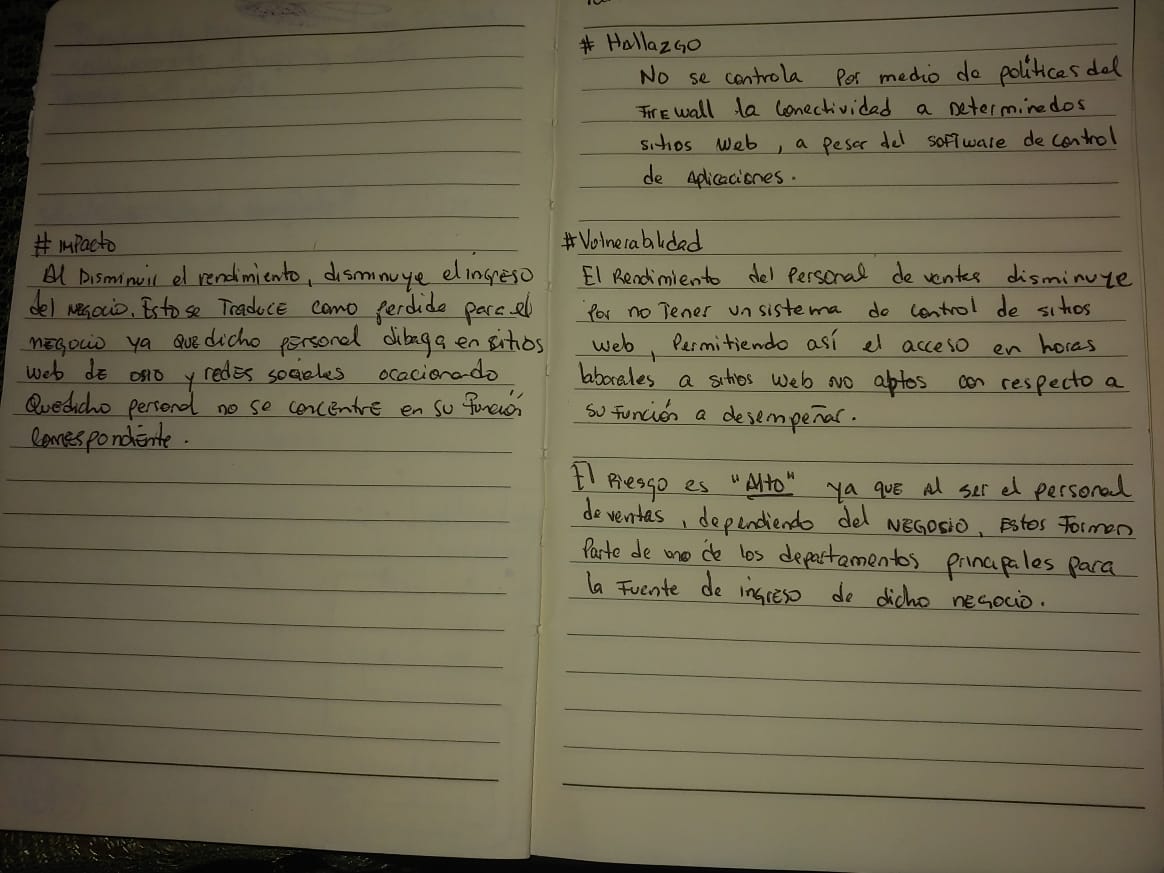 # Impacto
Al Disminuir el rendimiento, disminuye el ingreso
del negocio. Esto se Traduce como perdida para el
negocio ya que dicho personal dibaga en sitios
web de osio y redes sociales ocacionado
Que dicho personal no se concentre en su función
Correspondiente.
# Hallazgo
No se controla por medio de políticas del
Firewall la conectividad a Determinados
sitios web, a pesar del software de control
de Aplicaciones.
# Vulnerabilidad
El Rendimiento del Personal de ventas disminuye
por no Tener un sistema de control de sitios
web, Permitiendo así el acceso en horas
laborales a sitios web no aptos con respecto a
su función a desempeñar.
El Riesgo es "Alto" ya que Al ser el personal
de ventas, dependiendo del Negosio, Estos Forman
Parte de uno de los departamentos principales para
la Fuente de ingreso de dicho negocio.